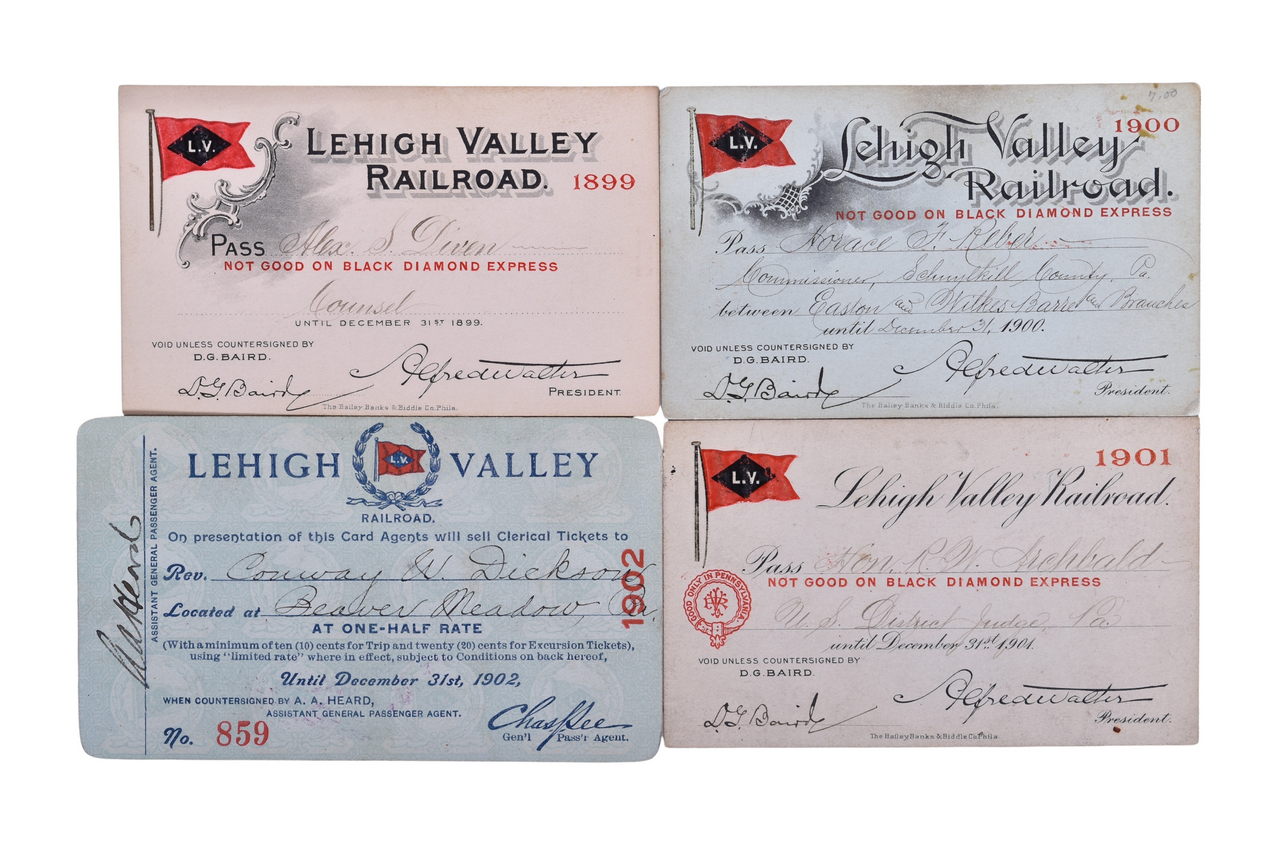 L.V.
LEHIGH VALLEY
RAILROAD. 1899
PASS Alex. S. Diven
NOT GOOD ON BLACK DIAMOND EXPRESS
Counsel
UNTIL DECEMBER 31ST 1899.
VOID UNLESS COUNTERSIGNED BY
D.G. BAIRD.
D.G. Baird Alfred Walter
PRESIDENT.
The Bailey Banks & Biddle Co. Phila.
7.00
L.V.
1900
Lehigh Valley
Railroad.
NOT GOOD ON BLACK DIAMOND EXPRESS
Pass Horace F. Reber
Commissioner, Schuylkill County, Pa.
between Easton and Wilkes Barre and Branches
until December 31, 1900.
VOID UNLESS COUNTERSIGNED BY
D.G. BAIRD.
D.G. Baird Alfred Walter
President.
The Bailey Banks & Biddle Co. Phila.
LEHIGH L.V. VALLEY
RAILROAD.
On presentation of this Card Agents will sell Clerical Tickets to
Rev. Conway W. Dickson
Located at Beaver Meadow, Pa.
1902
AT ONE-HALF RATE
(With a minimum of ten (10) cents for Trip and twenty (20) cents for Excursion Tickets),
using "limited rate" where in effect, subject to Conditions on back hereof,
Until December 31st, 1902,
WHEN COUNTERSIGNED BY A. A. HEARD,
ASSISTANT GENERAL PASSENGER AGENT.
No. 859
Chas S Lee
Gen'l Pass'r Agent.
A A Heard
ASSISTANT GENERAL PASSENGER AGENT.
L.V.
1901
Lehigh Valley Railroad.
Pass Hon. R. W. Archbald
NOT GOOD ON BLACK DIAMOND EXPRESS
GOOD ONLY IN PENNSYLVANIA.
U. S. District Judge, Pa.
until December 31st 1901.
VOID UNLESS COUNTERSIGNED BY
D.G. BAIRD.
D.G. Baird Alfred Walter
President.
The Bailey Banks & Biddle Co. Phila.